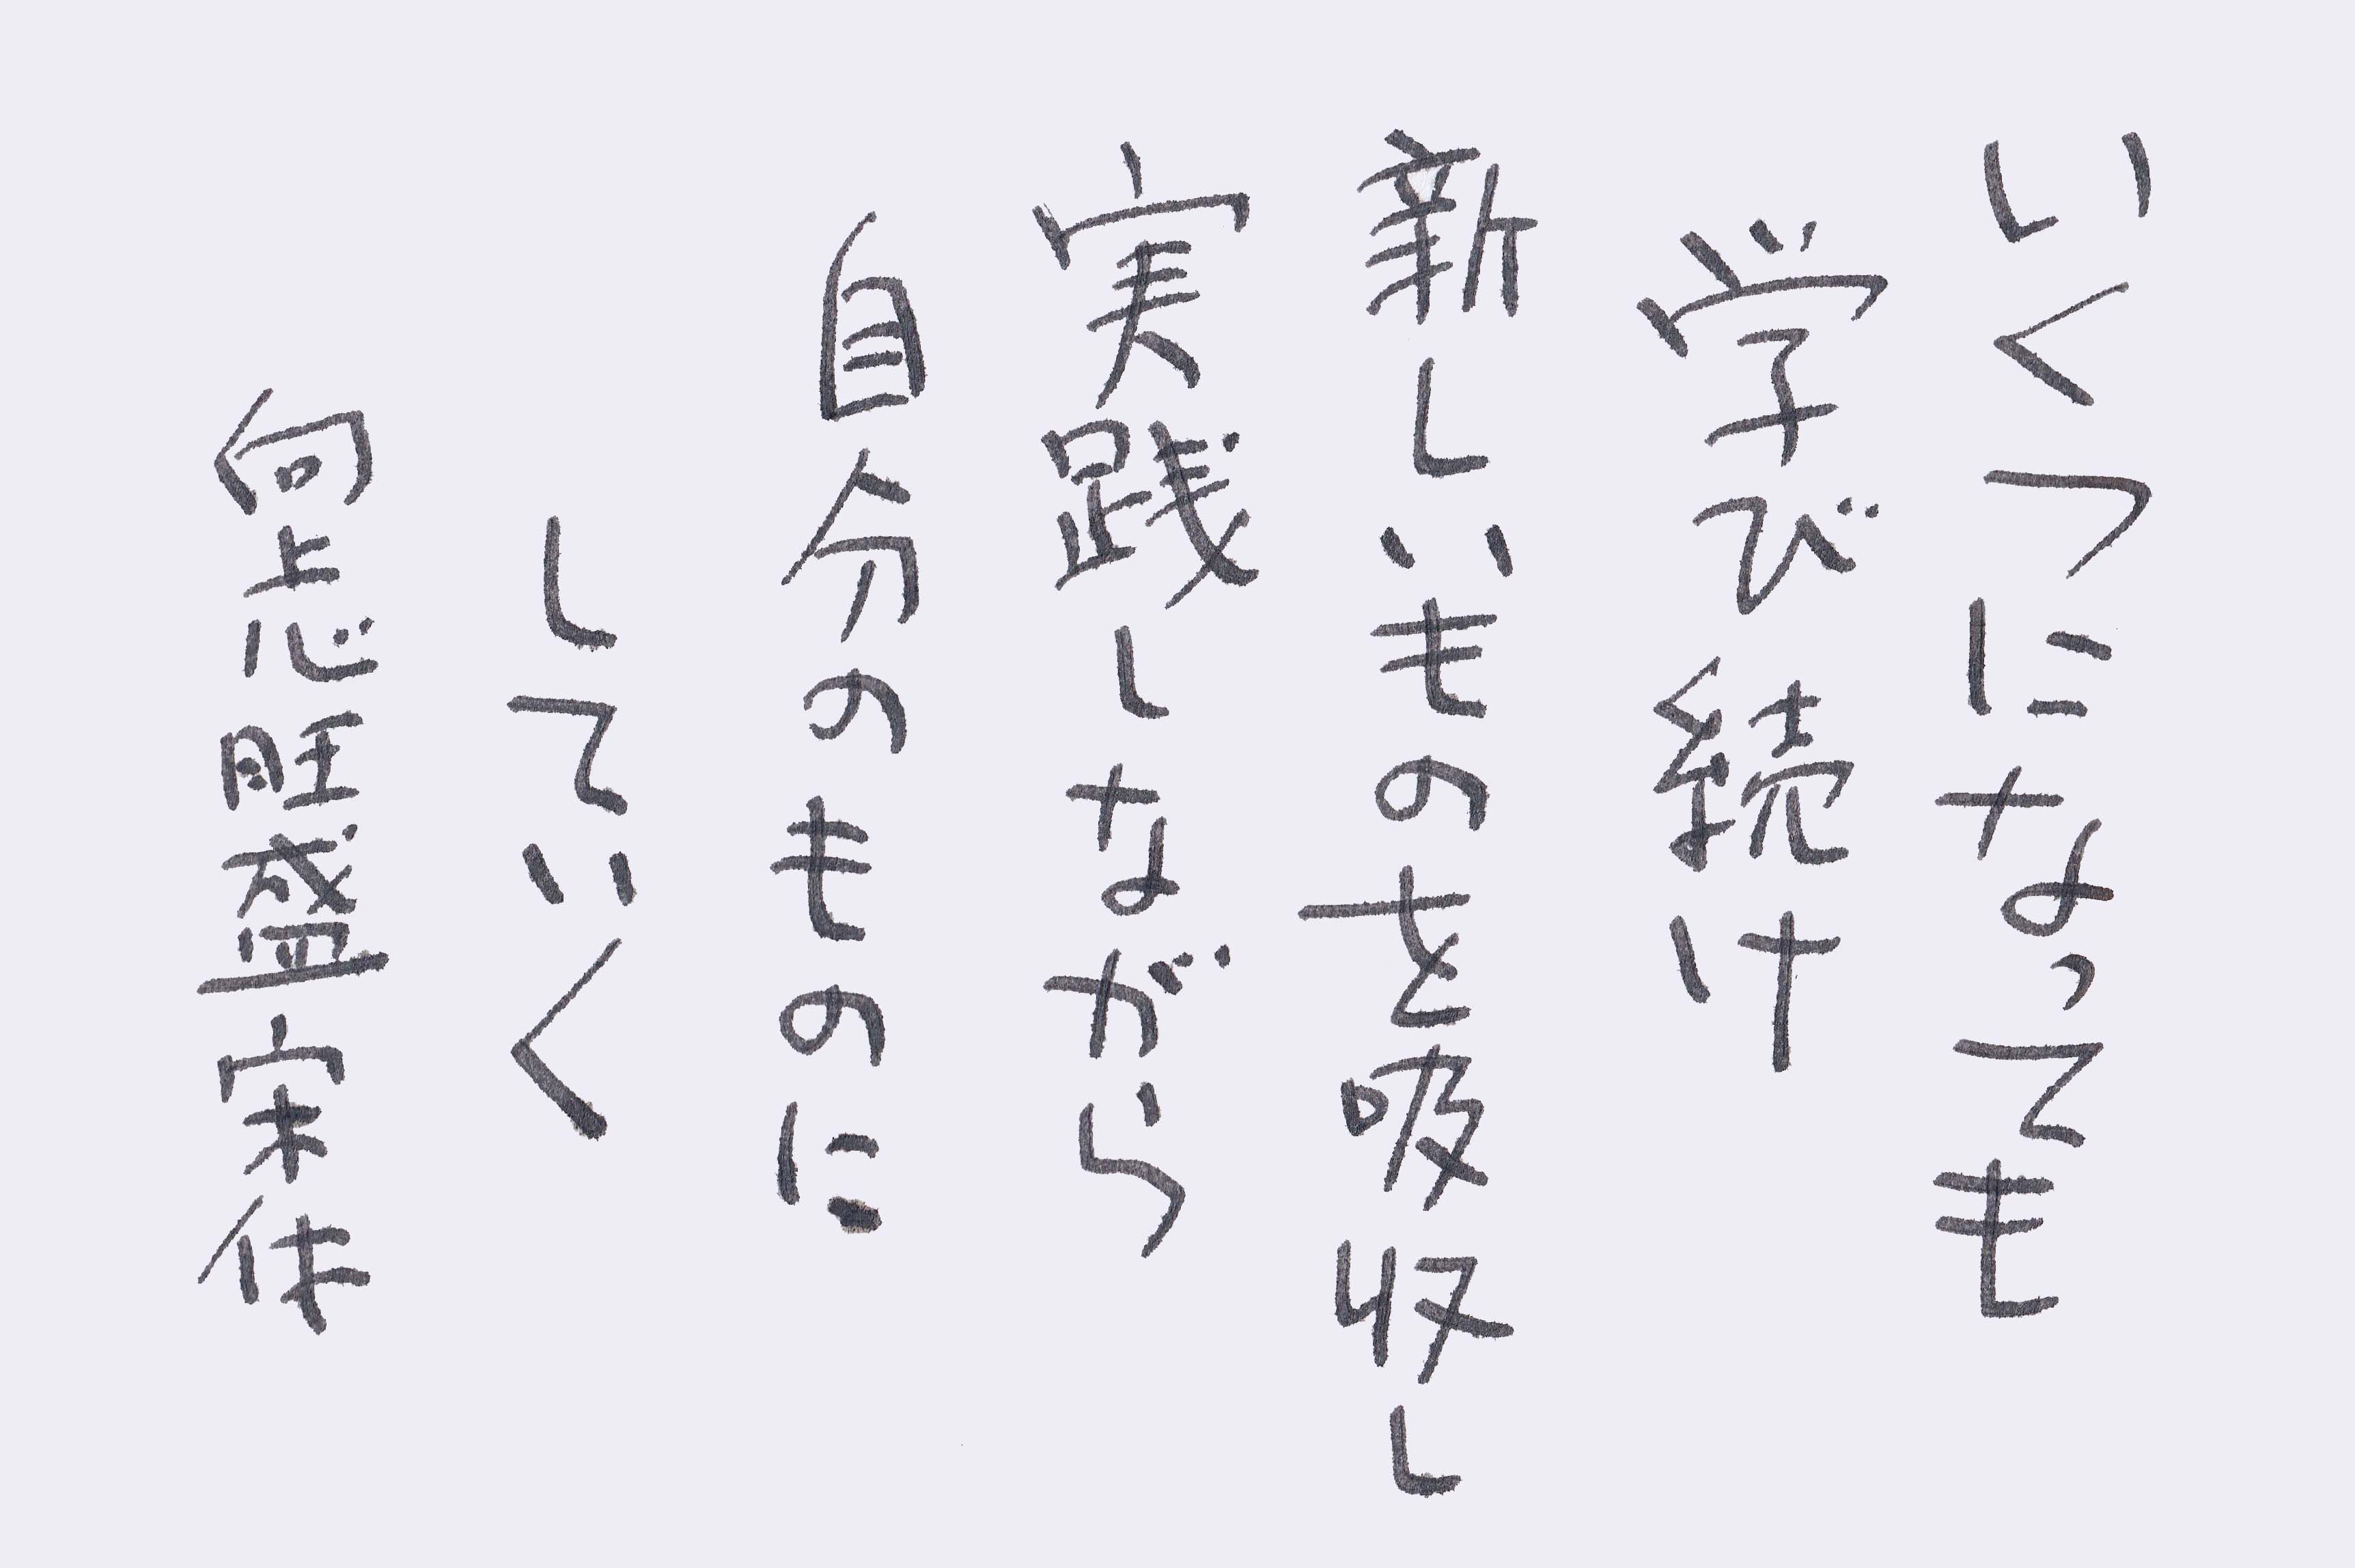 いくつになっても
学び続け
新しいものを吸収し
実践しながら
自分のものに
していく
向上心旺盛宋休